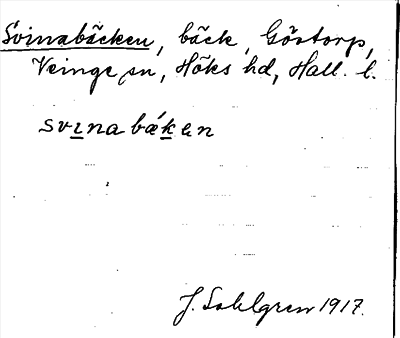 Svinabäcken, bäck, Göstorp,
Veinge sn, Höks hd, Hall. l.
svinabǽken
J. Sahlgren 1917.